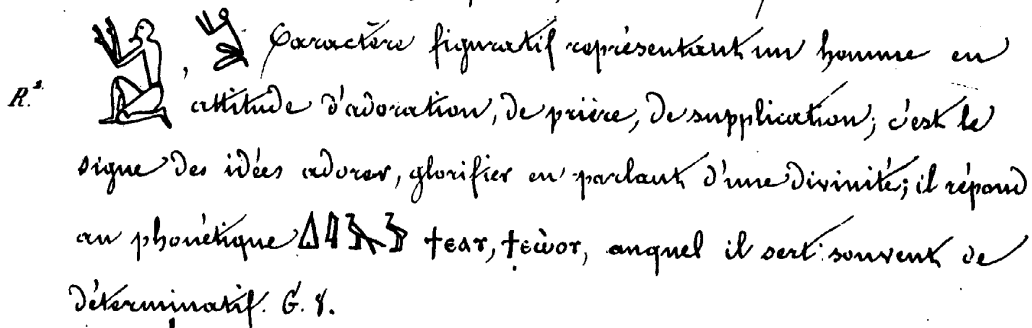 R.ˢ 𓀃, 𓀃 Caractère figuratif représentant un homme en
attitude d'adoration, de prière, de supplication; c'est le
signe des idées adorer, glorifier en parlant d'une divinité; il répond
au phonétique ϯεαγ, ϯεωογ, auquel il sert souvent de
déterminatif. G. 8.